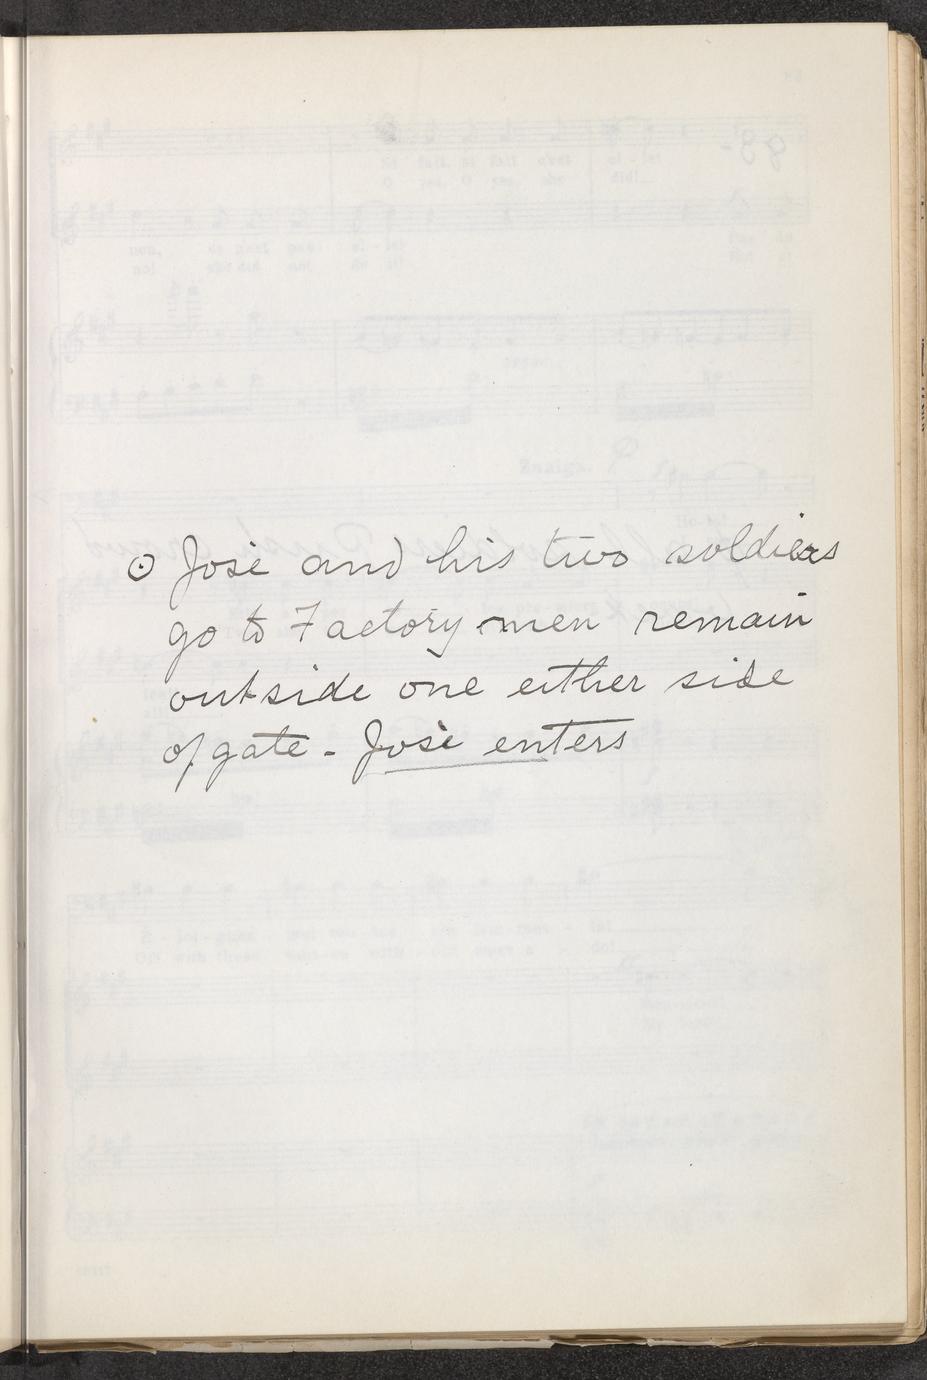 ⊙ José and his two soldiers
go to Factory men remain
outside one either side
of gate - José enters